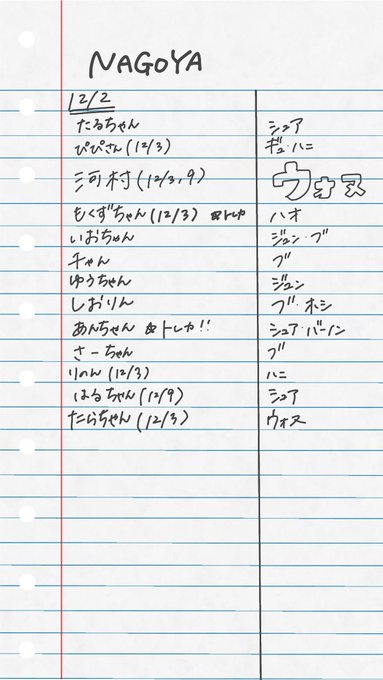 NAGOYA
12/2
たるちゃん シュア
ぴぴさん(12/3) ギュ・ハニ
河村(12/3,9) ウォヌ
もくずちゃん(12/3) ☆トレカ ハオ
いおちゃん ジュン・ブ
チャん ブ
ゆうちゃん ジュン
しおりん ブ・ホシ
あんちゃん ☆トレカ!! シュア・バーノン
さーちゃん ブ
りのん(12/3) ハニ
はるちゃん(12/9) シュア
たらちゃん(12/3) ウォヌ